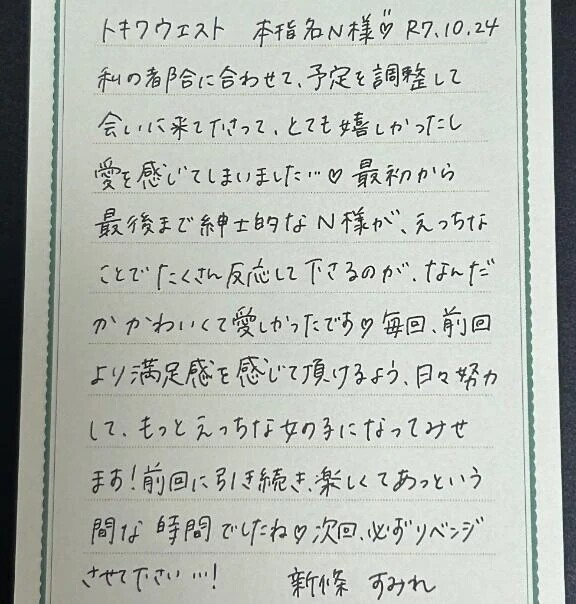 トキワウエスト 本指名N様♡ R7.10.24
私の都合に合わせて、予定を調整して
会いに来て下さって、とても嬉しかったし
愛を感じてしまいました…♡ 最初から
最後まで紳士的なN様が、えっちな
ことでたくさん反応して下さるのが、なんだ
かかわいくて愛しかったです♡毎回、前回
より満足感を感じて頂けるよう、日々努力
して、もっとえっちな女の子になってみせ
ます!前回に引き続き、楽しくてあっという
間な時間でしたね♡次回、必ずリベンジ
させて下さい…! 新條 すみれ